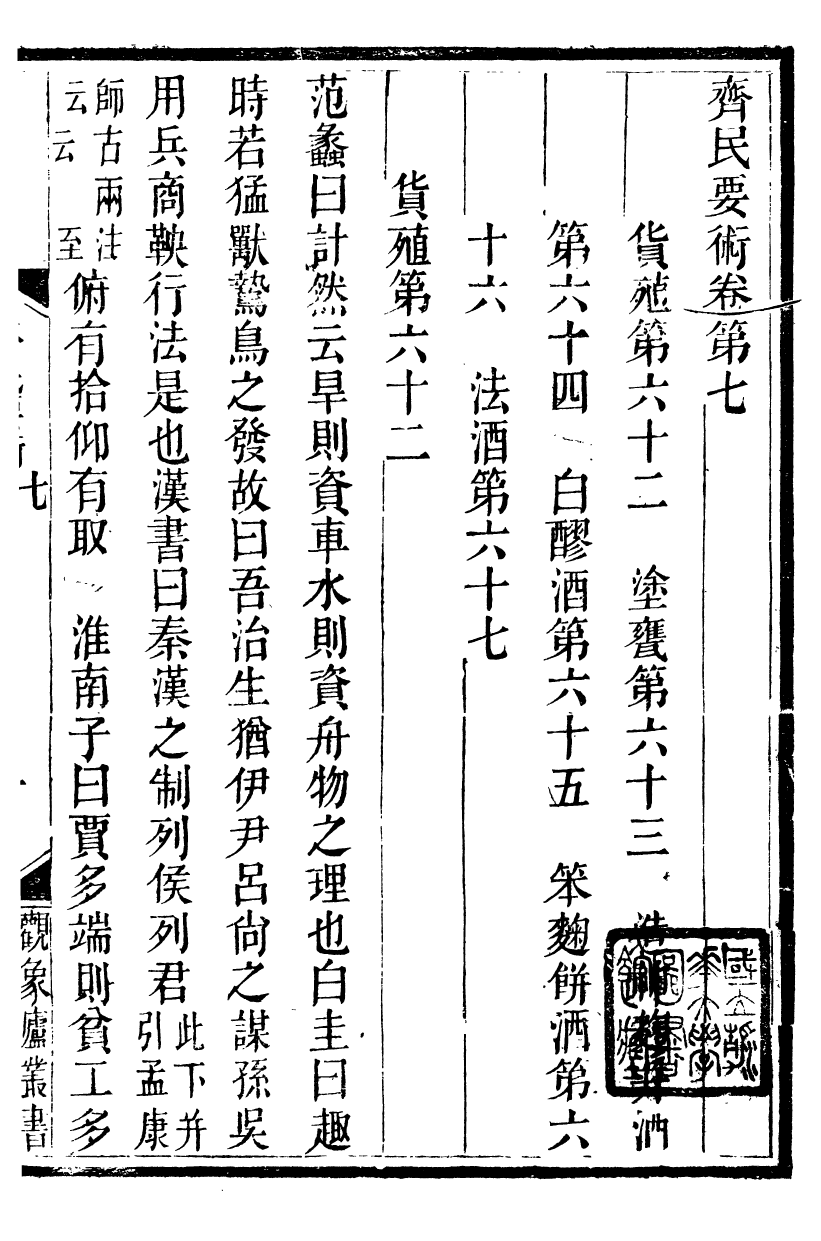 齊民要術卷第七
貨殖第六十二　塗甕第六十三　造神麴并酒
第六十四　白醪酒第六十五　笨麴餅酒第六
十六　法酒第六十七
貨殖第六十二
范蠡曰計然云旱則資車水則資舟物之理也白圭曰趣
時若猛獸鷙鳥之發故曰吾治生猶伊尹呂尚之謀孫吳
用兵商鞅行法是也漢書曰秦漢之制列侯列君此下并引孟康
師古兩注云云至俯有拾仰有取　淮南子曰賈多端則貧工多
七
觀象廬叢書
國立清華大學圖書館藏